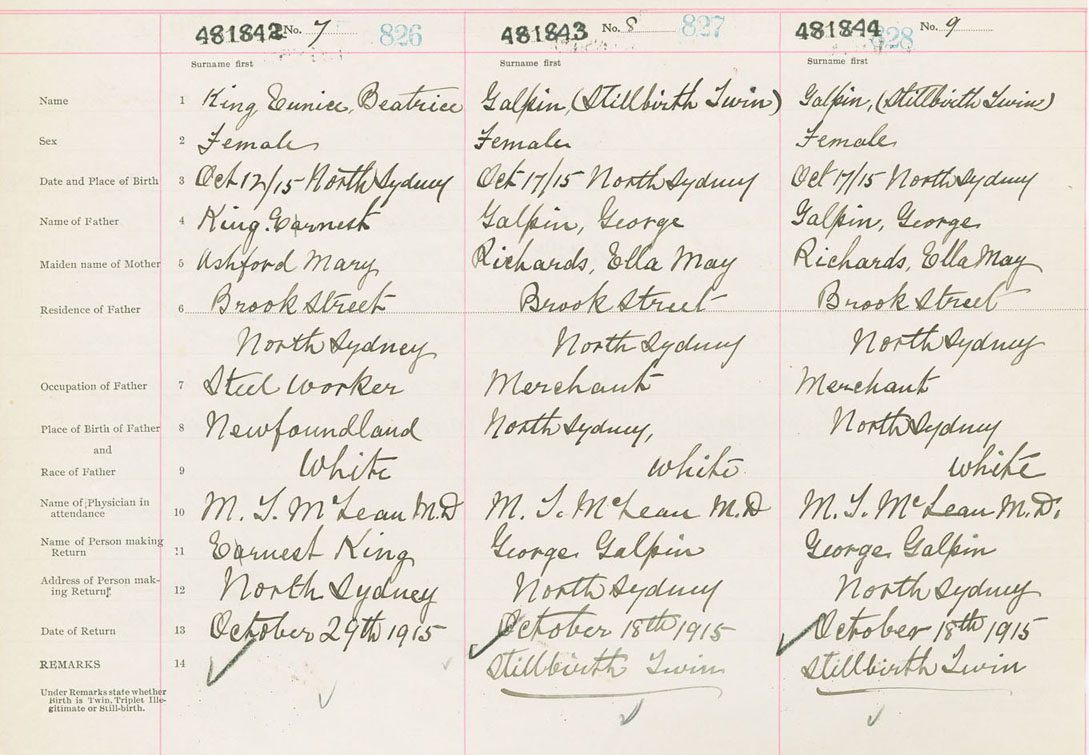 481842 No. 7 826 481843 No. 8 827 481844 828 No. 9
Surname first Surname first Surname first
Name 1 King, Eunice, Beatrice Galpin, (Stillbirth Twin) Galpin, (Stillbirth Twin)
Sex 2 Female Female Female
Date and Place of Birth 3 Oct 12/15 North Sydney Oct 17/15 North Sydney Oct 17/15 North Sydney
Name of Father 4 King. Earnest Galpin, George Galpin, George
Maiden name of Mother 5 Ashford Mary Richards, Ella May Richards, Ella May
Residence of Father 6 Brook Street Brook Street Brook Street
North Sydney North Sydney North Sydney
Occupation of Father 7 Steel Worker Merchant Merchant
Place of Birth of Father 8 Newfoundland North Sydney, North Sydney
and
Race of Father 9 White White White
Name of Physician in
attendance 10 M. T. McLean M.D M. T. McLean M.D M. T. McLean M.D.
Name of Person making
Return 11 Earnest King George Galpin George Galpin
Address of Person mak-
ing Return 12 North Sydney North Sydney North Sydney
Date of Return 13 October 29th 1915 October 18th 1915 October 18th 1915
REMARKS 14 Stillbirth Twin Stillbirth Twin
Under Remarks state whether
Birth is Twin, Triplet Ille-
gitimate or Still-birth.